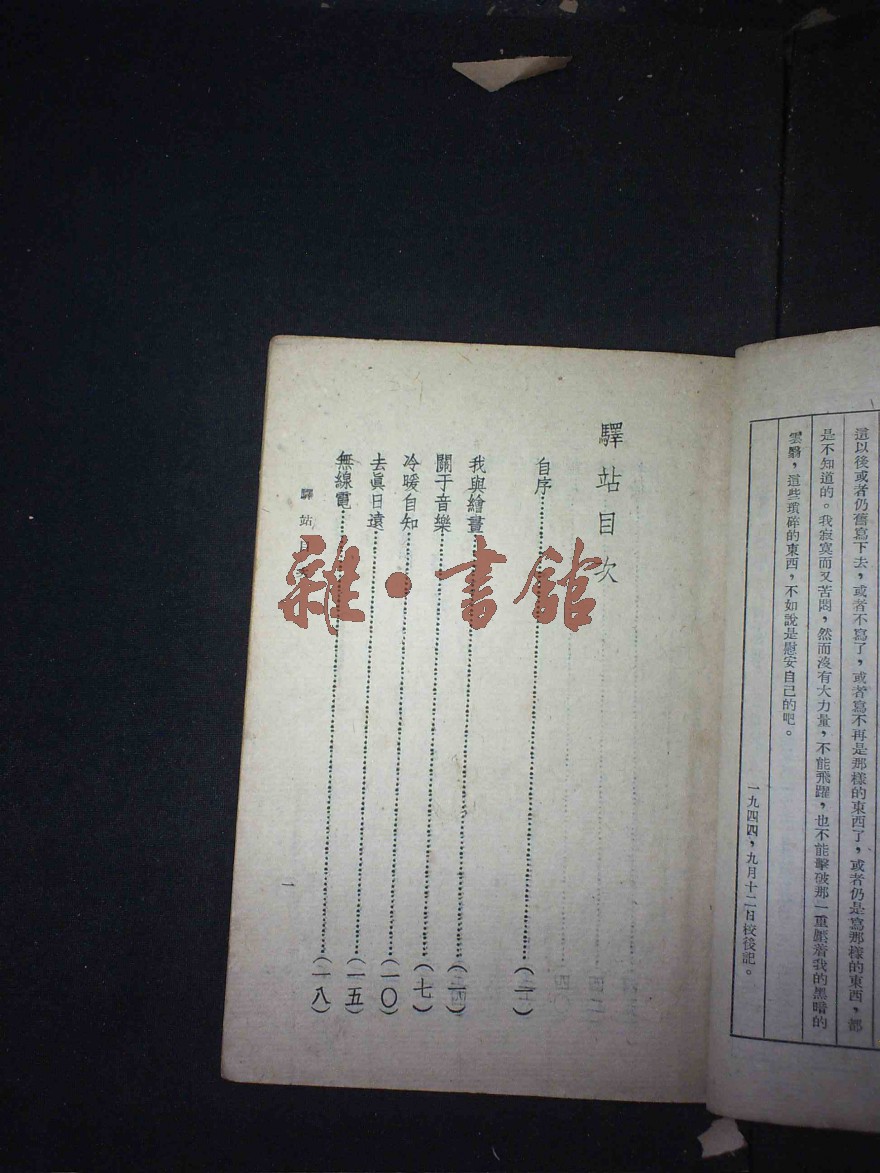 這以後或者仍舊寫下去，或者不寫了，或者寫不再是那樣的東西了，或者仍是寫那樣的東西，都
是不知道的。我寂寞而又苦悶，然而沒有大力量，不能飛躍，也不能擊破那一重壓着我的黑暗的
雲翳，這些瑣碎的東西，不如說是慰安自己的吧。
一九四四，九月十二日校後記。
驛站目次
自序……(一)
我與繪畫……(一)
關于音樂……(七)
冷暖自知……(一〇)
去眞日遠……(一五)
無線電……(一八)
驛站目次
一
雜·書館